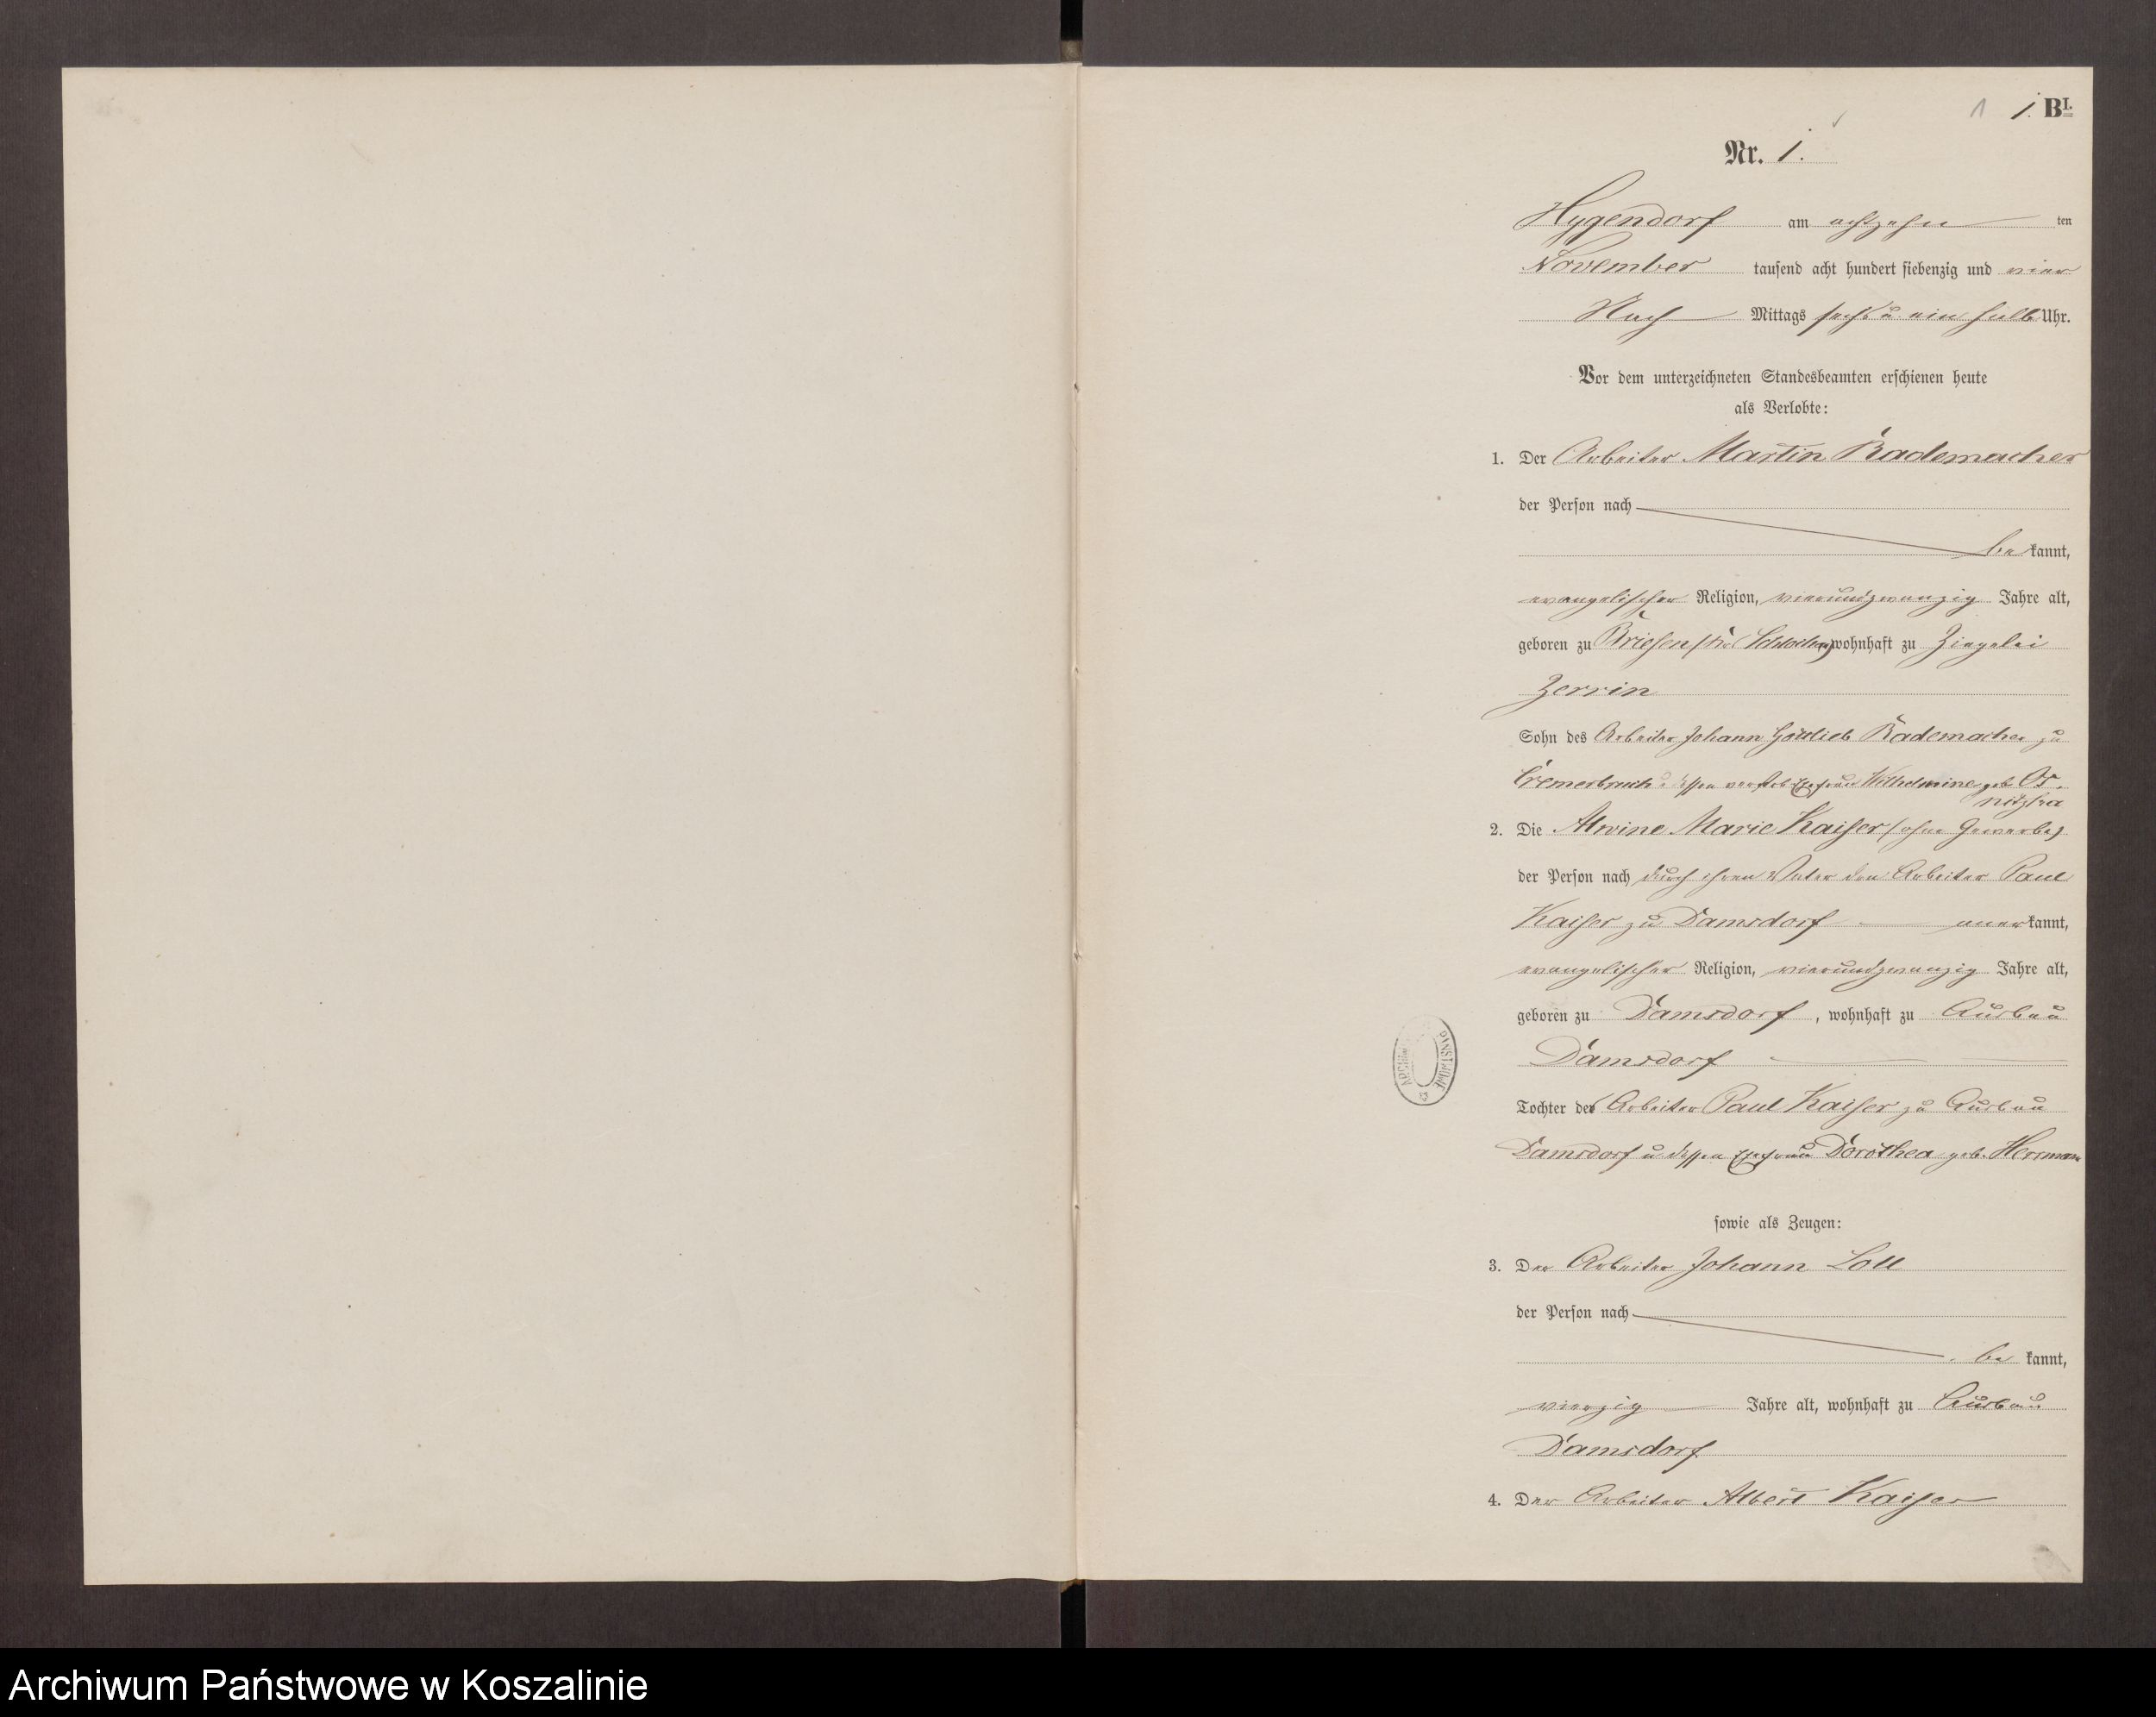 1 1. BI.
Nr. 1.
Hygendorf am achtzehn ten
November tausend acht hundert siebenzig und vier
Nach Mittags sechs u ein halb Uhr.
Vor dem unterzeichneten Standesbeamten erschienen heute
als Verlobte:
1. Der Arbeiter Martin Rademacher
der Person nach
be kannt,
evangelischer Religion, vierundzwanzig Jahre alt,
geboren zu Briesen wohnhaft zu Ziegelei
Zerrin
Sohn des Arbeiter Johann Gottlieb Rademacher zu
Cremerbruch u dessen verstorb Ehefrau Wilhelmine geb
2. Die Alwine Marie Kaiser (ohne Gewerbe)
der Person nach durch ihren Vater den Arbeiter Paul
Kaiser zu Damsdorf aner kannt,
evangelischer Religion, vierundzwanzig Jahre alt,
geboren zu Damsdorf, wohnhaft zu Ausbau
Damsdorf
Tochter des Arbeiter Paul Kaiser zu Ausbau
Damsdorf u dessen Ehefrau Dorothea geb. Herrmann
sowie als Zeugen:
3. Der Arbeiter Johann Loll
der Person nach
be kannt,
vierzig Jahre alt, wohnhaft zu Ausbau
Damsdorf
4. Der Arbeiter Albert Kaiser
Archiwum Państwowe w Koszalinie